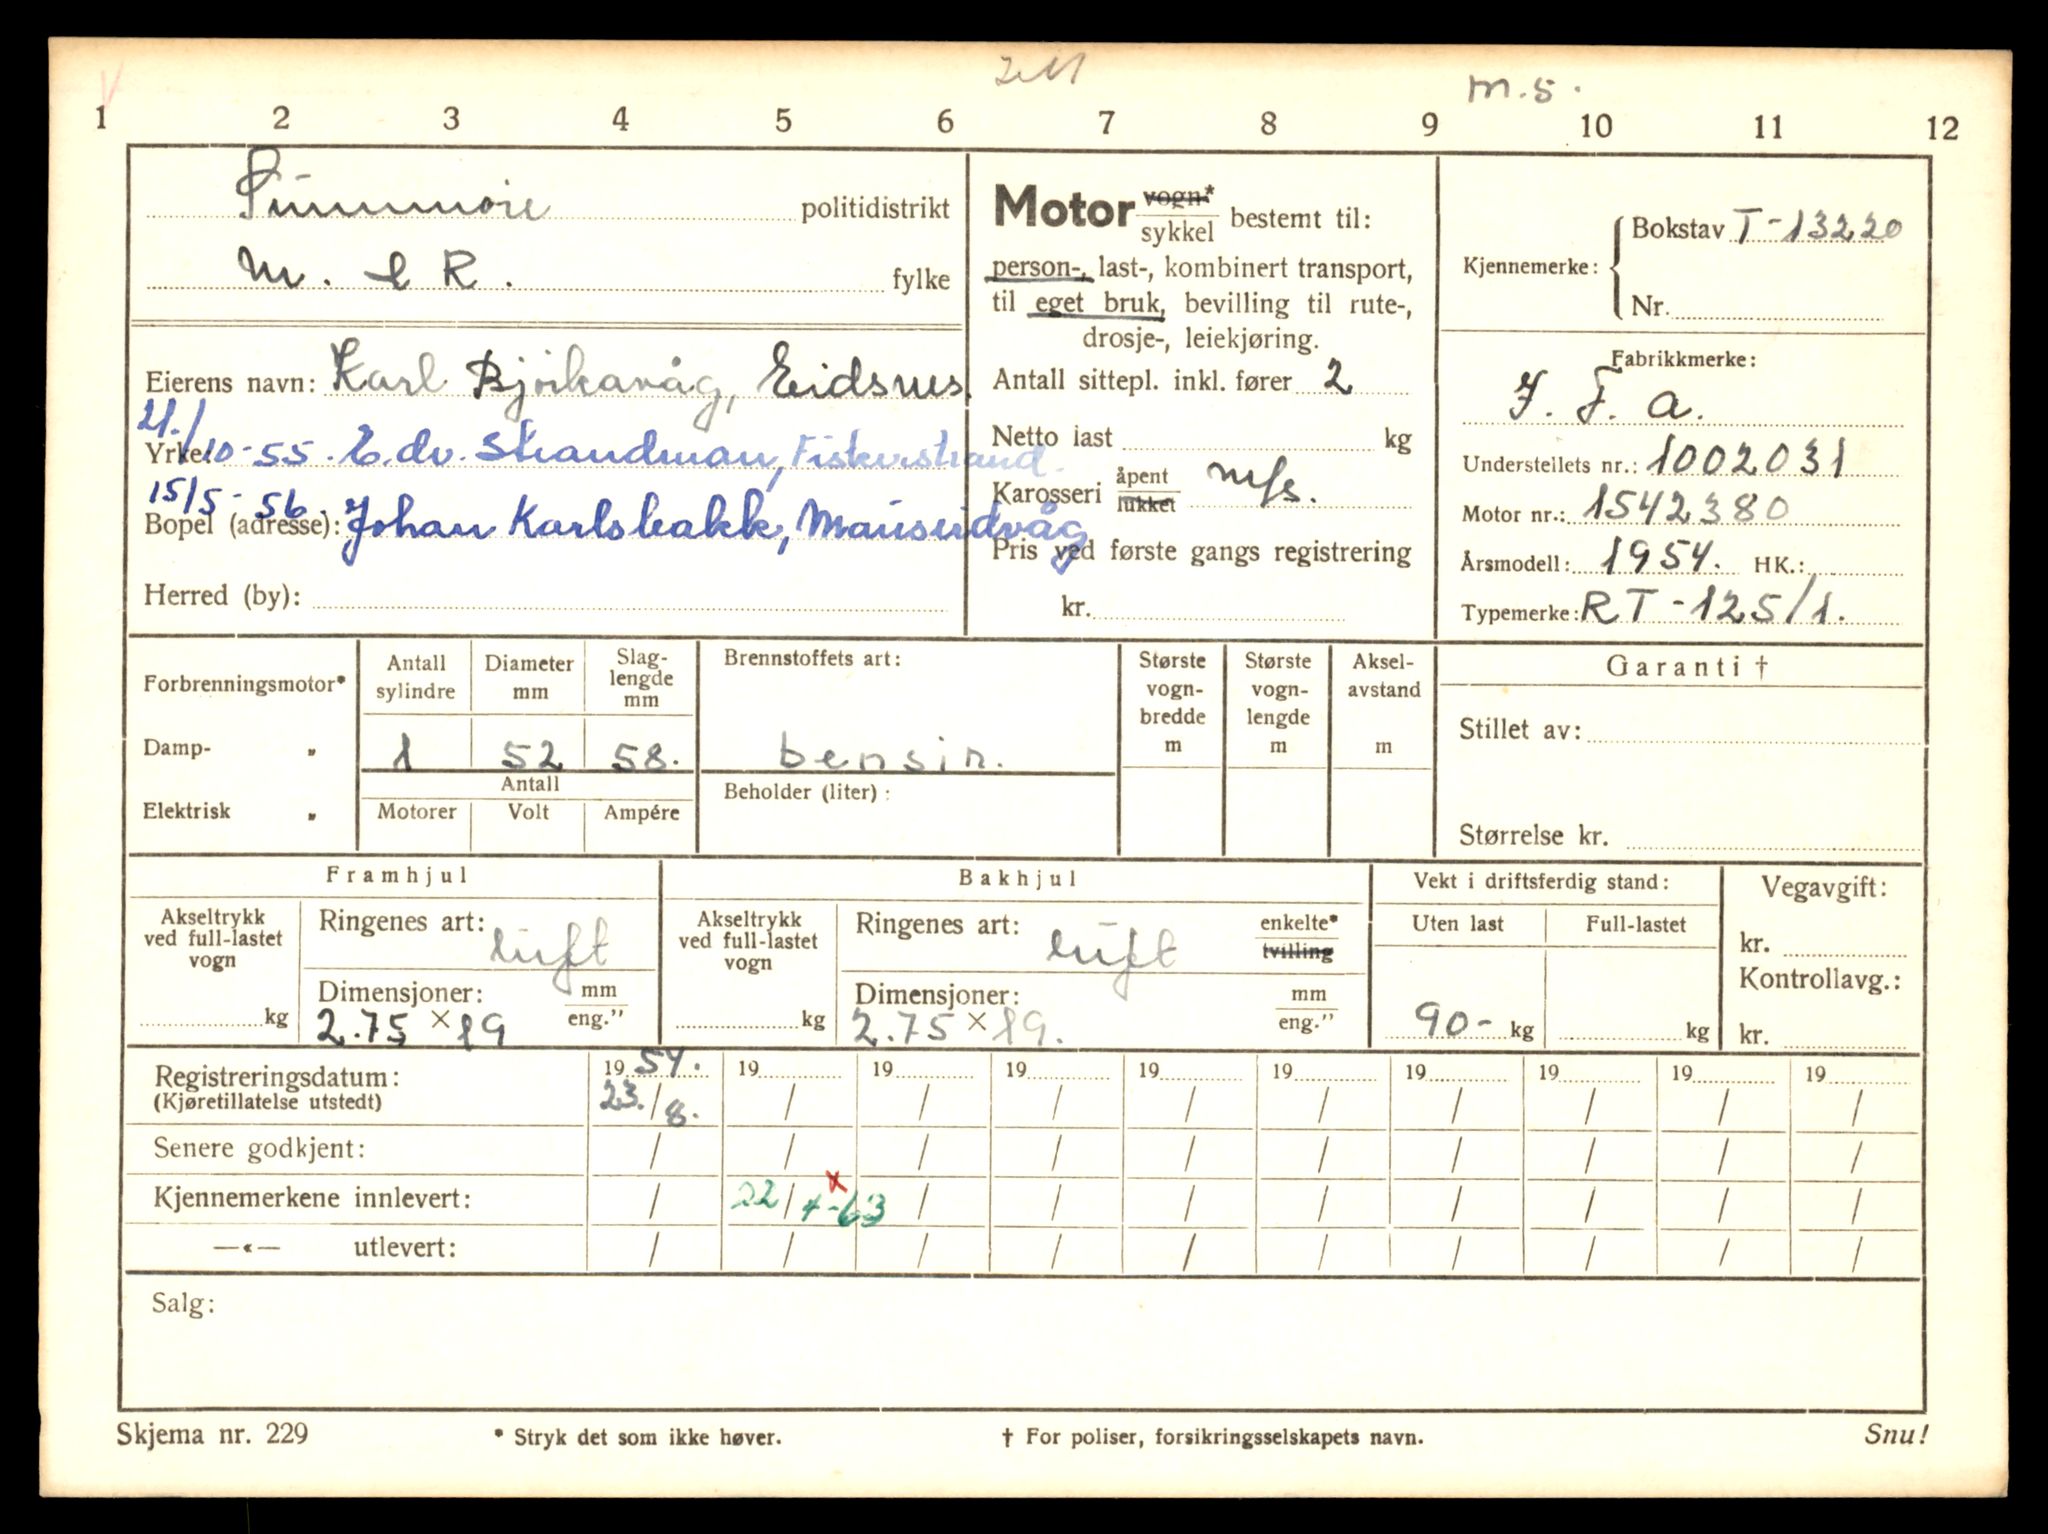 m.s.
1 2 3 4 5 6 7 8 9 10 11 12
Sunnmøre politidistrikt
M. & R. fylke
Eierens navn: Karl Bjørkavåg, Eidsnes.
21./10-55. E.dv. Strandman, Fiskerstrand.
Yrke:
15/5-56. Johan Karlsbakk, Mauseidvåg
Bopel (adresse):
Herred (by):
Motor vogn* / sykkel bestemt til:
person-, last-, kombinert transport,
til eget bruk, bevilling til rute-,
drosje-, leiekjøring.
Antall sittepl. inkl. fører 2
Netto last kg
Karosseri åpent / lukket m/s.
Pris ved første gangs registrering
kr.
Kjennemerke: Bokstav T-13220
Nr.
Fabrikkmerke:
J. F. a.
Understellets nr.: 1002031
Motor nr.: 1542380
Årsmodell: 1954. HK.:
Typemerke: RT-125/1.
Forbrenningsmotor*
Damp- „
Elektrisk „
Antall sylindre Diameter mm Slaglengde mm
1 52 58.
Antall
Motorer Volt Ampére
Brennstoffets art:
bensin.
Beholder (liter):
Største vogn-bredde m
Største vogn-lengde m
Aksel-avstand m
Garanti †
Stillet av:
Størrelse kr.
Framhjul
Akseltrykk ved full-lastet vogn
kg
Ringenes art: luft
Dimensjoner: mm / eng."
2.75 × 19
Bakhjul
Akseltrykk ved full-lastet vogn
kg
Ringenes art: luft enkelte* / tvilling
Dimensjoner: mm / eng."
2.75 × 19.
Vekt i driftsferdig stand:
Uten last Full-lastet
90- kg kg
Vegavgift:
kr.
Kontrollavg.:
kr.
Registreringsdatum: 19 54. 19 19 19 19 19 19 19 19 19
(Kjøretillatelse utstedt) 23./8. / / / / / / / / /
Senere godkjent: / / / / / / / / / /
Kjennemerkene innlevert: / 22/4-63 x / / / / / / / /
—«— utlevert: / / / / / / / / / /
Salg:
Skjema nr. 229 * Stryk det som ikke høver. † For poliser, forsikringsselskapets navn. Snu!